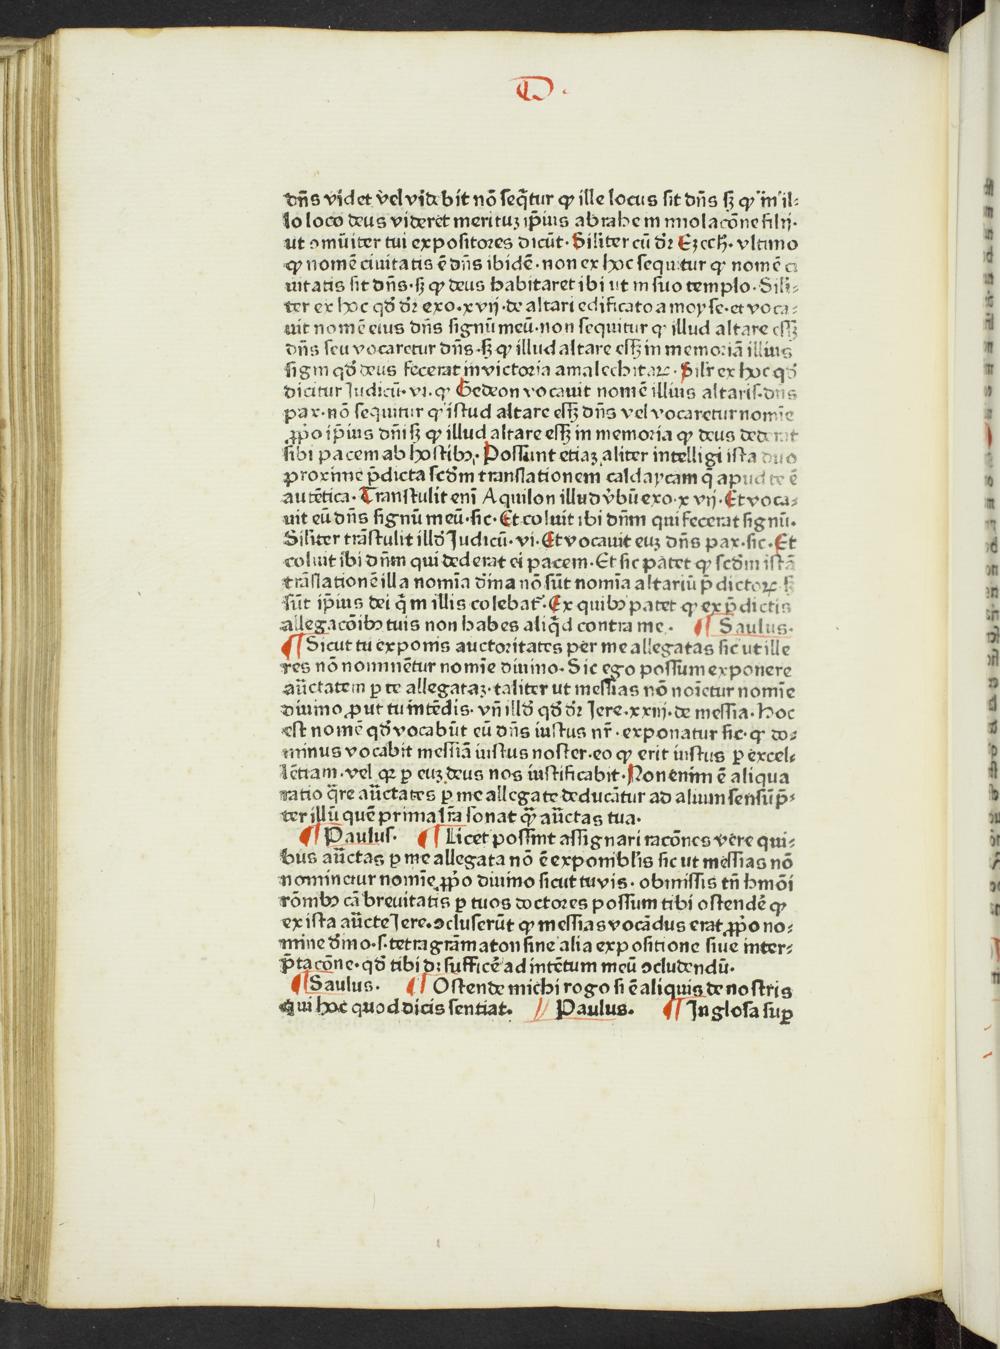 D.
dn̄s videt vel videbit nō seq̄tur ꝙ ille locus sit dn̄s sꝫ ꝙ in il⸗
lo loco deus videret merituꝫ ip̄ius abrahe in īmolacōne filij·
ut ↄmūiter tui expositores dicūt· Siliter cū dꝛ Ezech̄· vltimo
ꝙ nomē ciuitatis ē dn̄s ibidē· non ex hoc sequitur ꝙ nomē ci
uitatis sit dn̄s· sꝫ ꝙ deus habitaret ibi ut in suo templo· Sili⸗
ter ex hoc qd̄ dꝛ exo·xvij· de altari edificato a moyse· et voca⸗
uit nomē eius dn̄s signū meū· non sequitur ꝙ illud altare eēꝫ
dn̄s seu vocaretur dn̄s· sꝫ ꝙ illud altare eēꝫ in memoriā illius
signi qd̄ deus fecerat in victoria amalechitaꝝ· Silr̄ ex hoc qd̄
dicitur Judicū· vi· ꝙ Gedeon vocauit nomē illius altaris· dn̄s
pax· nō sequitur ꝙ istud altare eēꝫ dn̄s vel vocaretur nomīe
ꝓpͦo ip̄ius dn̄i sꝫ ꝙ illud altare eēꝫ in memoria ꝙ deus dederat
sibi pacem ab hostibꝫ· Possunt etiaꝫ aliter intelligi ista duo
proxime p̄dicta scd̄m translationem caldaycam q̄ apud te ē
autētica· Transtulit enī Aquilon illud v̄bū exo·xvij· Et voca⸗
uit eū dn̄s signū meū· sic· Et coluit ibi dn̄m qui fecerat signū·
Siliter trāstulit illd̄ Judicū· vi· Et vocauit euꝫ dn̄s pax· sic· Et
coluit ibi dn̄m qui dederat ei pacem· Et sic patet ꝙ scd̄m istā
trāslationē illa nomīa diīna nō sūt nomīa altariū p̄dictoꝝ sꝫ
sūt ip̄ius dei q̄ in illis colebat̄· Ex quibꝫ patet ꝙ ex p̄dictis
allegacōibꝫ tuis non habes aliq̄d contra me· ¶ Saulus·
¶ Sicut tu exponis auctoritates per me allegatas sic ut ille
res nō nominētur nomīe diuino· Sic ego possum exponere
aūctatem ꝑ te allegataꝫ· taliter ut messias nō noīetur nomīe
diuino ꝓut tu intēdis· vn̄ illd̄ qd̄ dꝛ Jere·xxiij· de messia· hoc
est nomē qd̄ vocabūt eū dn̄s iustus nr̄· exponatur sic· ꝙ do⸗
minus vocabit messiā iustus noster· eo ꝙ erit iustus ꝑ excel⸗
lētiam· vel qꝛ ꝑ euꝫ deus nos iustificabit· Non enim ē aliqua
ratio q̄re aūctates ꝑ me allegate deducātur ad alium sensū p̄⸗
ter illū quē prima lr̄a sonat q̄ꝫ aūctas tua·
¶ Paulus· ¶ Licet possint assignari racōnes vere qui⸗
bus aūctas ꝑ me allegata nō ē exponiblis sic ut messias nō
nominetur nomīe ꝓpͦo diuino sicut tu vis· obmissis tn̄ hmōi
rōnibꝫ cā breuitatis ꝑ tuos doctores possum tibi ostendē ꝙ
ex ista aūcte Jere· ↄcluserūt ꝙ messias vocādus erat ꝓpͦo no⸗
mine diīno· s· tetragrāmaton sine alia expositione siue inter⸗
p̄tacōne· qd̄ tibi dꝫ sufficē ad intētum meū ↄcludendū·
¶ Saulus· ¶ Ostende michi rogo si ē aliquis de nostris
qui hoc quod dicis sentiat· // Paulus· ¶ In glosa suꝑ